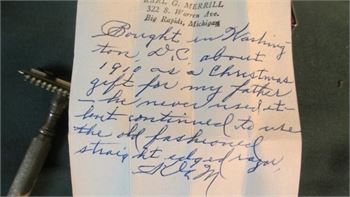 KARL G. MERRILL
322 S. Warren Ave.
Big Rapids, Michigan
Bought in Washing
ton, D.C. about
1910 as a Christmas
gift for my father
– he never used it –
but continued to use
the old fashioned
straight edged razor.
K G M